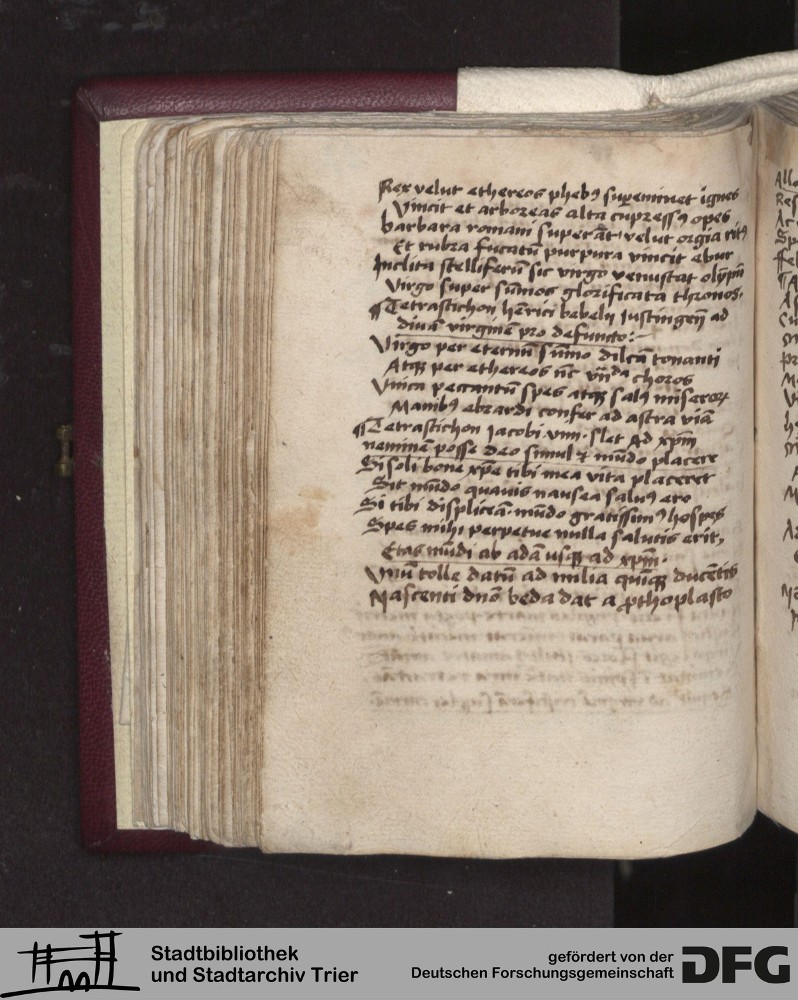 Rex velut ethereos phebꝰ sup̱eminet ignes
Vincit et arboreas alta cupressꝰ opes
barbara romani superāt velut orgia ritꝰ
Et rubra fucatū purpura vincit ebur
Inclita stelliferū sic virgo venustat olȳpū
Virgo super sūmos glorificata thronos.
¶Tetrastichon hēricj bebelij Justingeñ ad
diuā virginē pro defuncto:
Virgo per eternū sūmo dilc̄a tonanti
Atqꝫ per ethereos choros
Vnica peccantū spes atqꝫ salꝰ miseroꝝ
Manibꝰ ebrardi confer ad astra viā
¶Tetrastichon Jacobi slet Ad xp̄m
neminē posse deo simul ⁊ mūdo placere
Si soli bone xp̄e tibi mea vita placeret
Sit mūdo quauis nausea salꝰ ero
Si tibi displiceā. mūdo gratissimꝰ hospes
Spes mihi perpetue nulla salutis erit,
Etas mūdi ab adā usqꝫ ad xp̄m.
Vnū tolle datū ad milia quīqꝫ ducētis
Nascenti dn̄o beda dat a ꝓthoplasto
Stadtbibliothek
und Stadtarchiv Trier
gefördert von der
Deutschen Forschungsgemeinschaft
DFG